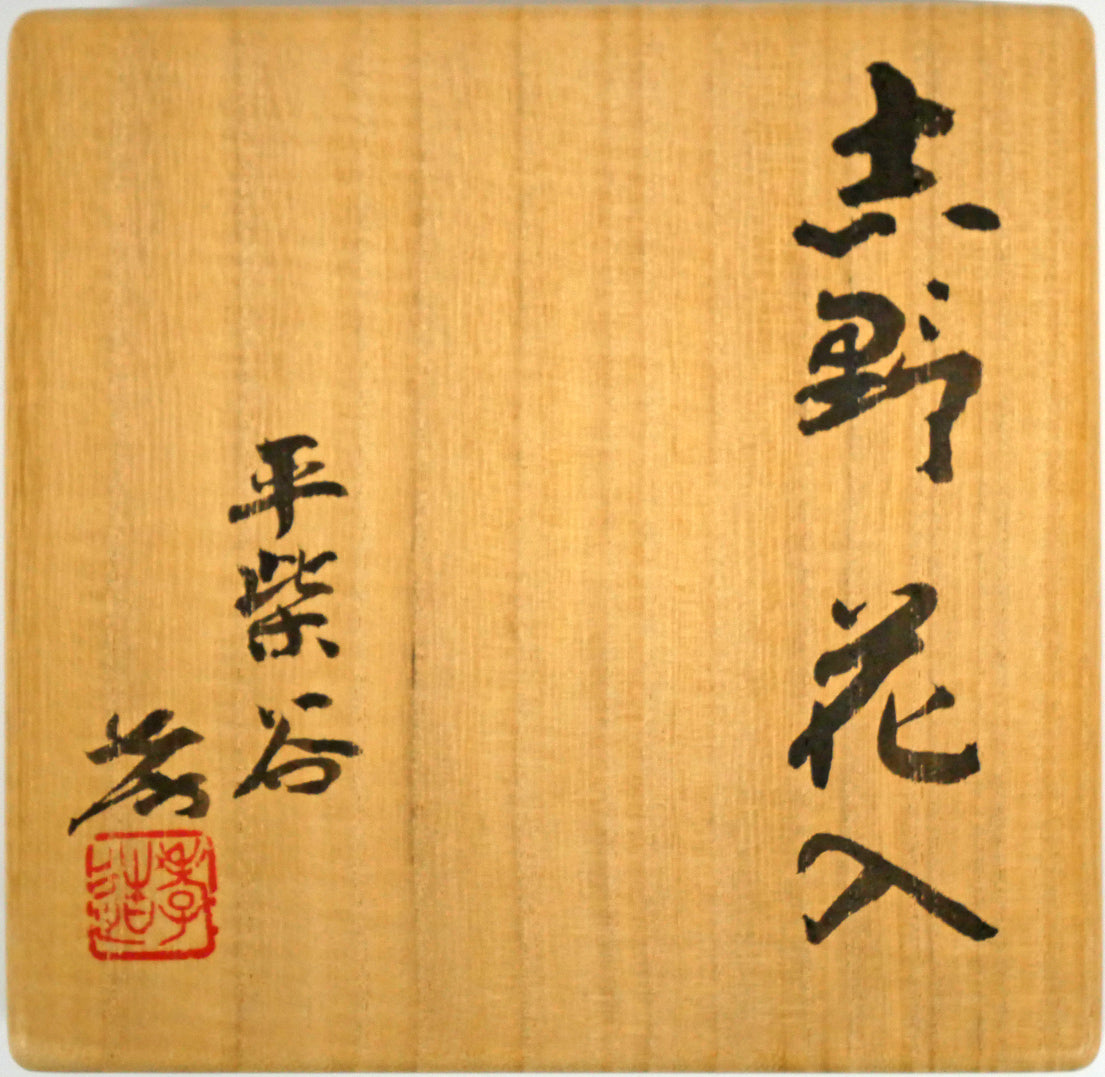 志野 花入
平柴谷
孝造